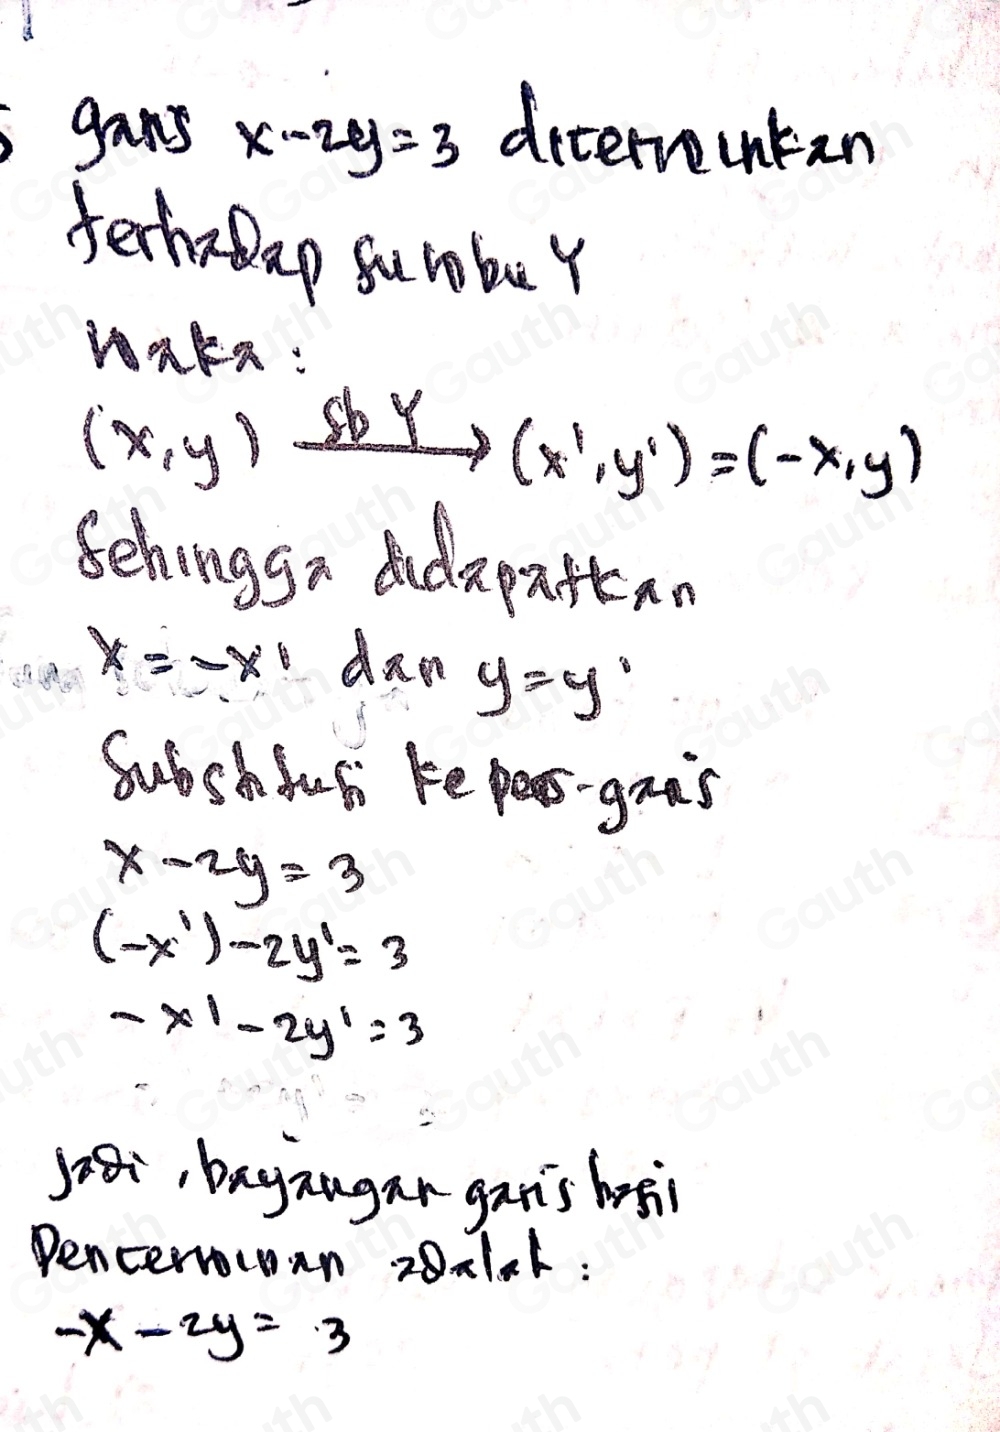 garis x-2y=3 dicerminkan
terhadap sumbu Y
maka:
(x,y) sb Y → (x',y')=(-x,y)
Sehingga didapatkan
x=-x' dan y=y'
Substitusi ke pers-garis
x-2y=3
(-x')-2y'=3
-x'-2y'=3
Jadi, bayangan garis hasil
Pencerminan adalah:
-x-2y=3